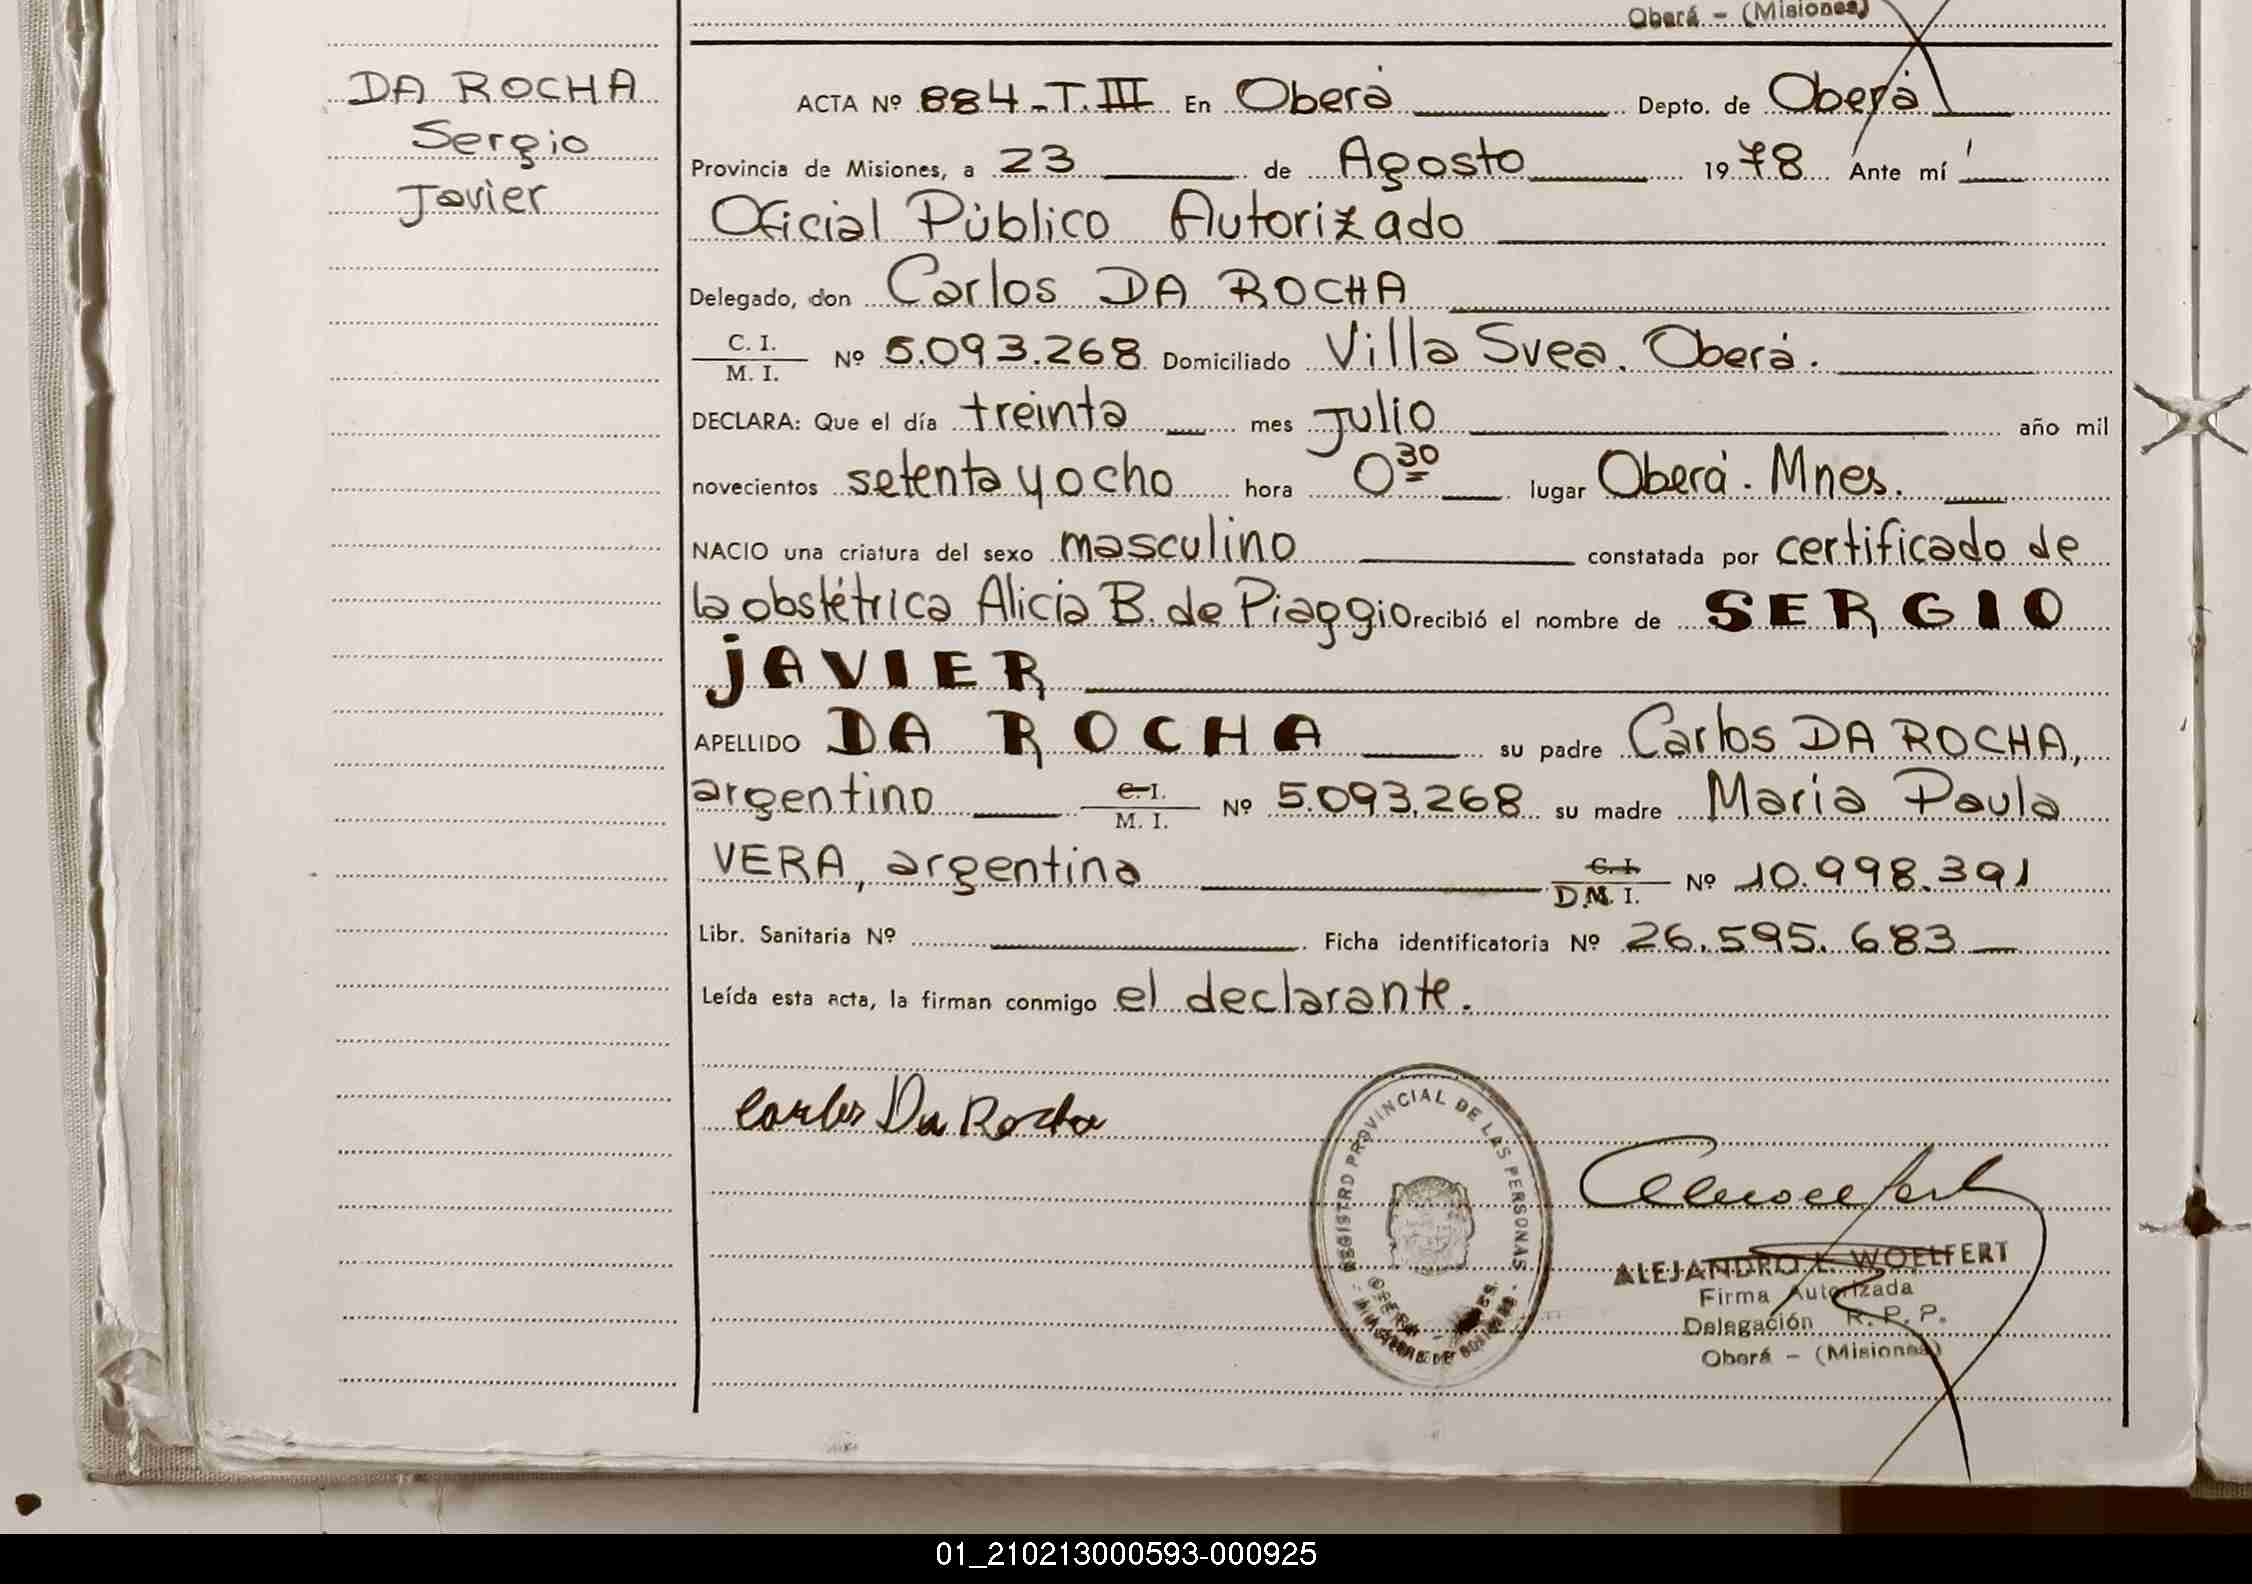 Oberá - (Misiones)
DA ROCHA
Sergio
Javier
ACTA Nº 884-T.III En Oberá Depto. de Oberá
Provincia de Misiones, a 23 de Agosto 1978 Ante mí
Oficial Público Autorizado
Delegado, don Carlos DA ROCHA
C. I.
M. I. Nº 5.093.268 Domiciliado Villa Svea. Oberá.
DECLARA: Que el día treinta mes julio año mil
novecientos setenta y ocho hora 0 30 lugar Oberá. Mnes.
NACIO una criatura del sexo masculino constatada por certificado de
la obstétrica Alicia B. de Piaggio recibió el nombre de SERGIO
JAVIER
APELLIDO DA ROCHA su padre Carlos DA ROCHA,
argentino C. I. M. I. Nº 5.093.268 su madre Maria Paula
VERA, argentina C. I. D.M. I. Nº 10.998.391
Libr. Sanitaria Nº Ficha identificatoria Nº 26.595.683
Leída esta acta, la firman conmigo el declarante.
Carlos Da Rocha
REGISTRO PROVINCIAL DE LAS PERSONAS
ALEJANDRO L. WOELFERT
Firma Autorizada
Delegación R. P. P.
Oberá - (Misiones)
01_210213000593-000925